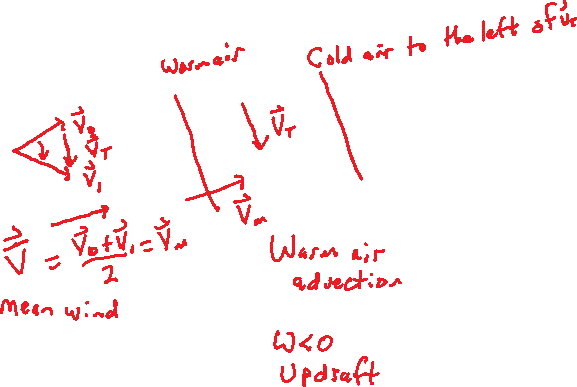 Warm air
Cold air to the left of V⃗_T
V⃗_0
V⃗_T
V⃗_1
V⃗_T
V⃗_M
V⃗ = (V⃗_0 + V⃗_1)/2 = V⃗_M
Mean wind
Warm air
advection
W<0
Updraft